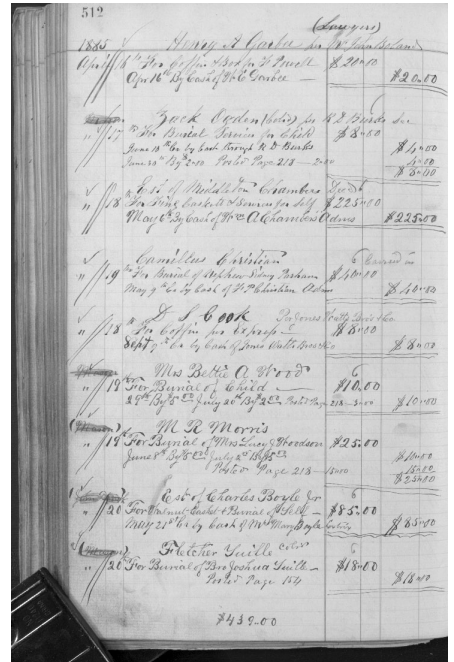 512
(Sawyers)
1885 Henry A for
April // For Coffin & Box for $20.00
Apr 16th By Cash of $20.00
Zack Ogden (Cold) for R D Burks
" // 17 For Burial Service for Child $8.00
June 13th Cr by Cash through R. D. Burks $4.00
June By 2.00 Posted Page 218 — 2.00 4.00
$8.00
Est of Middleton Chambers Decd 6
" // 18 For Casket & Services for Self $225.00
May 6th By Cash of Wm A Chambers Adms $225.00
Camillus Christian 6
" // 19 For Burial of Nephew $40.00
May 9th Cr by Cash of Christian Adms $40.00
D. S. Cook
" // 18 For Coffin per Express $8.00
Sept Cr by Cash of Jones Watts Bros & Co $8.00
Mrs Bettie A Wood 6
" // 19 For Burial of Child — $10.00
By 5.00 July 20th By 2.00 Posted Page 218 — 3.00 $10.00
M R Morris
" // 19 For Burial of Mrs Woodson $25.00
June 8th By 5.00 July By 5.00 $10.00
Posted Page 218 — 15.00 15.00
$25.00
Est of Charles Boyle Jr 6
" // 20 For Walnut Casket & Burial of Self — $85.00
May 21st Cr by Cash of Mrs Mary Boyle $85.00
Fletcher Tuille Cold 6
" // 20 For Burial of Bro Joshua Tuille — $18.00
Posted Page 154 $18.00
$439.00